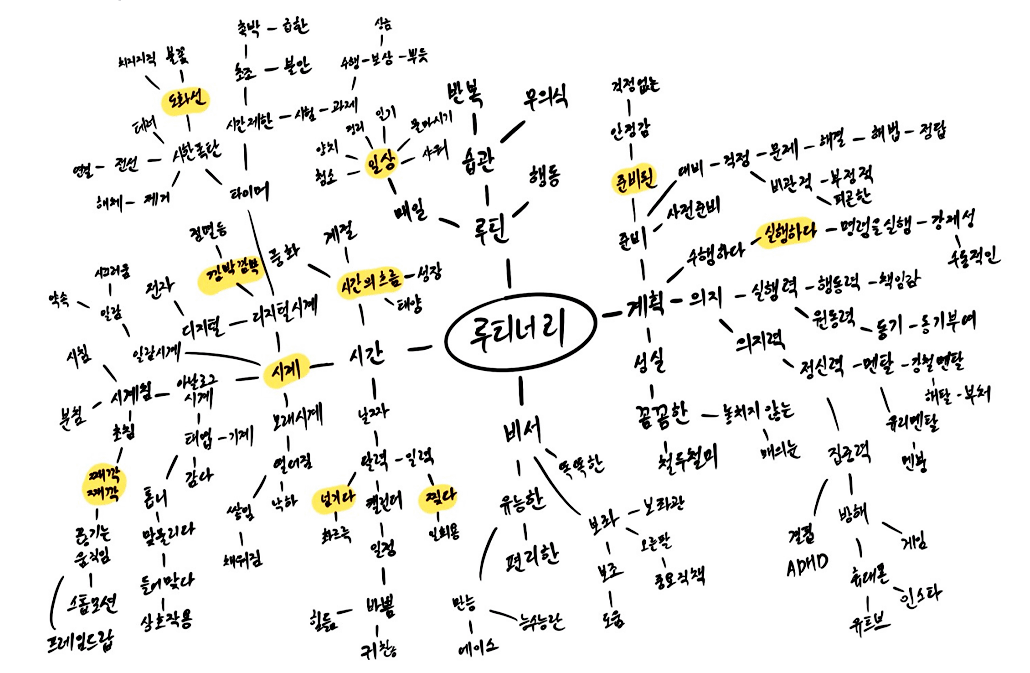 촉박 - 급한
초조 - 불안
시간제한 - 시험 - 과제
수행 - 보상 - 뿌듯
상금
불꽃
도화선
시한폭탄
테러
연결 - 전선
해체 - 제거
타이머
반복
무의식
습관
행동
루틴
매일
일상
양치
정리
일기
물마시기
샤워
청소
루티너리
시간
시간의 흐름
계절
성장
태양
동화
시계
디지털시계
디지털
전자
깜빡깜빡
점멸등
알람시계
알람
시끄러움
약속
아날로그
시계
시계침
시침
분침
초침
째깍
째깍
끊기는
움직임
스톱모션
프레임드랍
태엽 - 기계
감다
톱니
맞물리다
들어맞다
상호작용
모래시계
떨어짐
쌓임
낙하
채워짐
날짜
달력 - 일력
넘기다
화르륵
캘린더
일정
바쁨
힘듦
귀찮
찢다
일회용
비서
똑똑한
유능한
편리한
만능
에이스
능수능란
보좌 - 보좌관
오른팔
중요직책
보조
도움
계획
준비
준비된
안정감
걱정없는
사전준비
대비 - 걱정 - 문제 - 해결 - 해법 - 정답
비관적 - 부정적
피곤한
수행하다
실행하다 - 명령을 실행 - 강제성
수동적인
의지 - 실행력 - 행동력 - 책임감
원동력 - 동기 - 동기부여
의지력
정신력 - 멘탈 - 강철멘탈
해탈 - 부처
유리멘탈
멘붕
집중력
결핍
ADHD
방해
게임
휴대폰
인스타
유튜브
성실
꼼꼼한 - 놓치지 않는
철두철미
매의눈